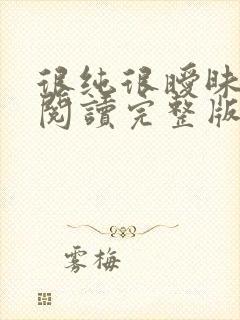 很纯很曖昧
閱讀完整版
雾梅